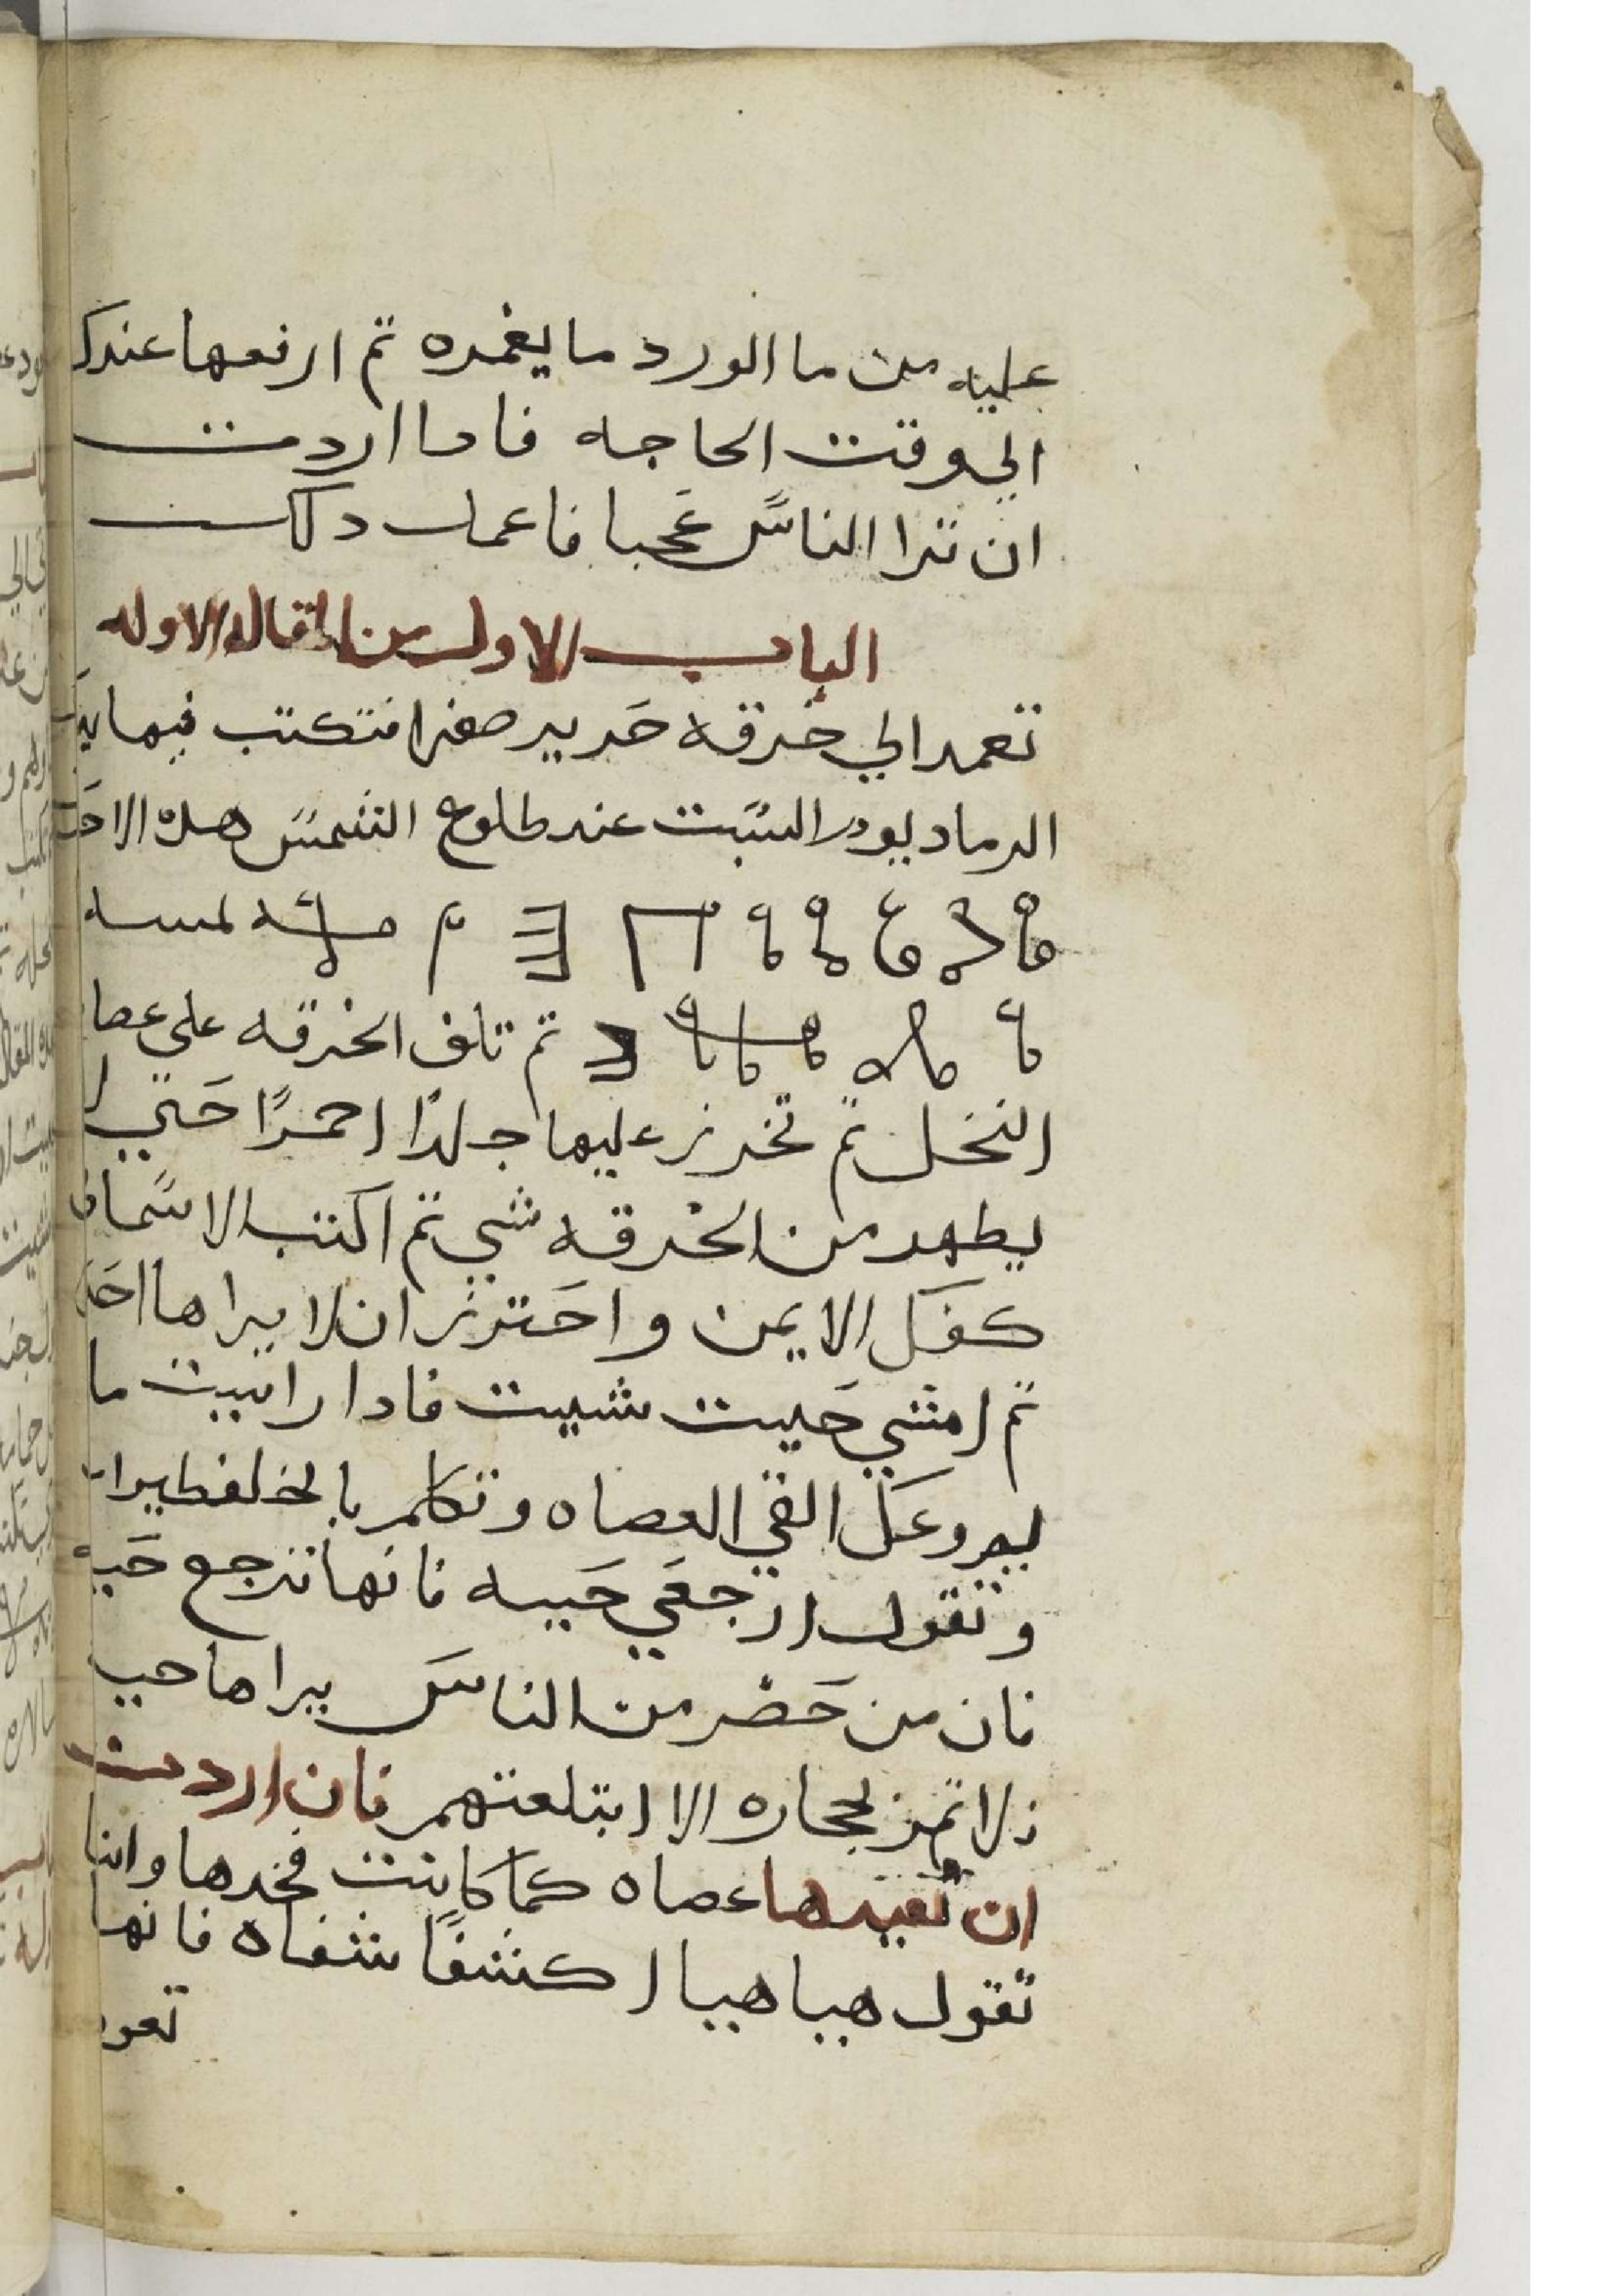 عليه من ما الورد ما يغمره تم ارفعها عندك
الي وقت الحاجه فادا اردت
ان ترا الناس عجبا فاعمل دلك
الباب الاول من المقاله الاوله
تعمد الي خرقه حرير صفرا فتكتب فيها
الرماد يوم السبت عند طلوع الشمس هده
تم تلف الخرقه علي عصا
النخل تم تخرز عليها جلدًا احمرًا حتي لا
يطهر من الخرقه شي تم اكتب الاسما في
كفك الايمن واحترز ان لا يراها احد
تم امشي حيت شيت فادا راييت ما
يروعك القي العصاه وتكلم
وتقول ارجعي حييه فانها ترجع حيه
فان من حضر من الناس يراها حيه
لا تمر بحجاره الا ابتلعتهم فان اردت
ان تعيدها عصاه كما كانت فخدها وانتا
تقول هيا هيا اكشفًا شفاه فانها
تعود